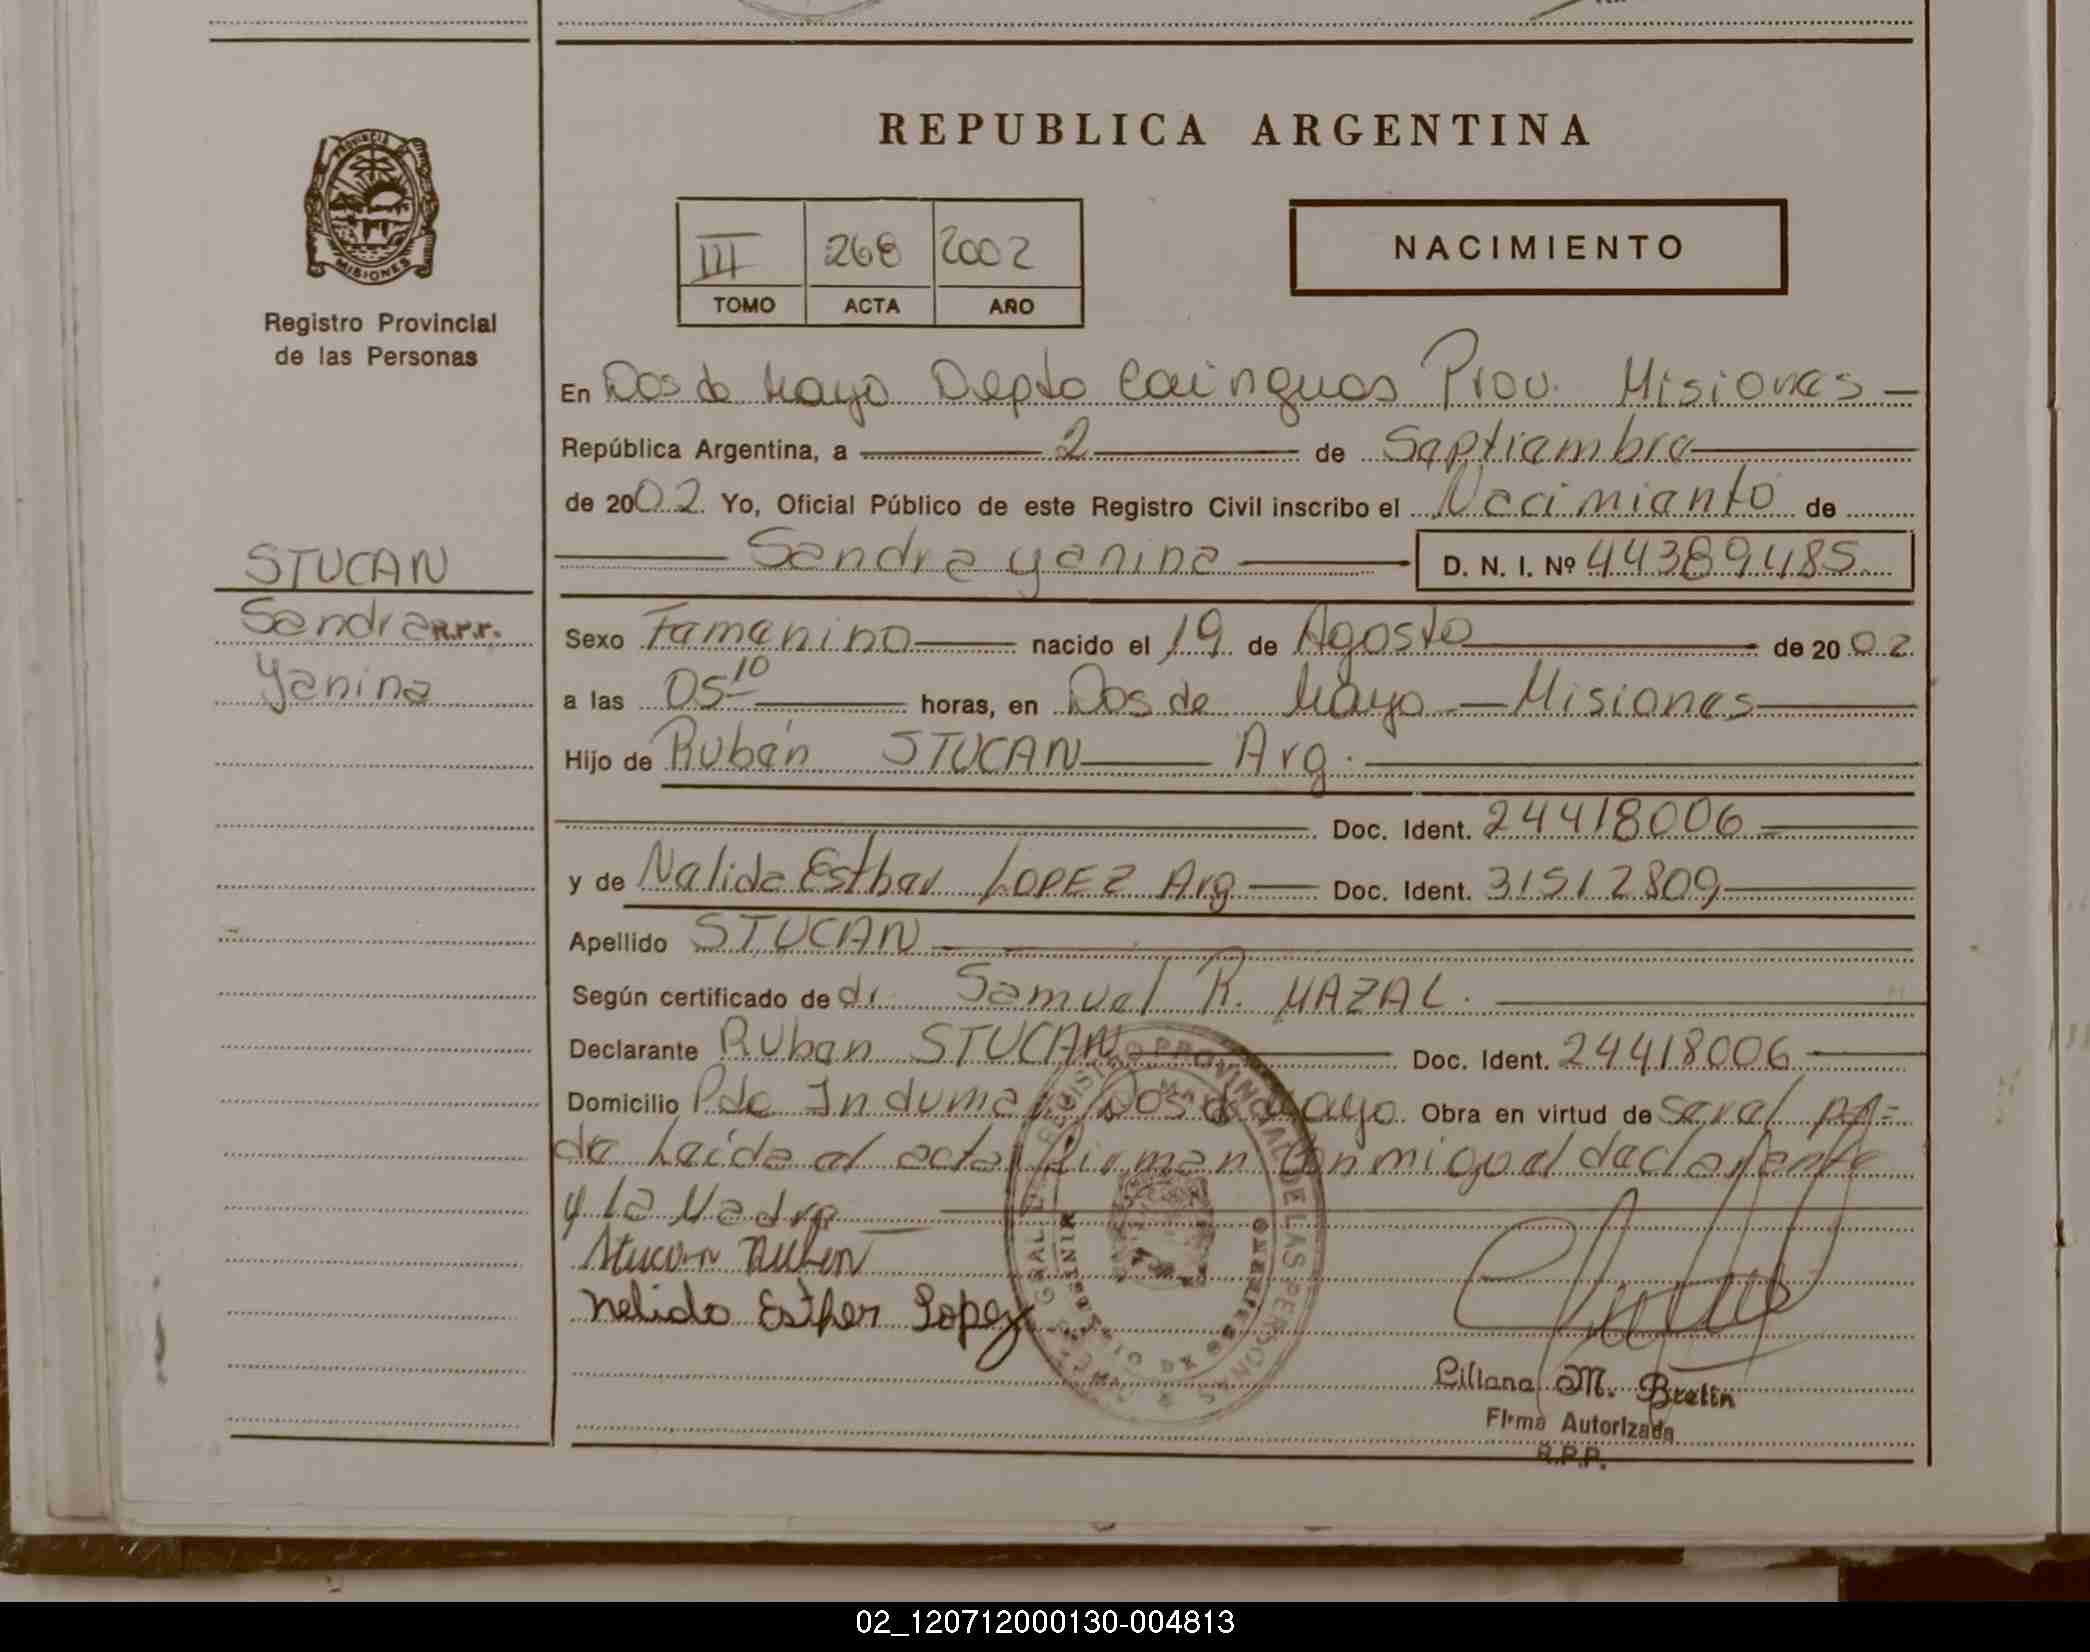 REPUBLICA ARGENTINA
PROVINCIA DE
MISIONES
Registro Provincial
de las Personas
III 268 2002
TOMO ACTA AÑO
NACIMIENTO
En Dos de Mayo Depto Cainguas Prov. Misiones
República Argentina, a 2 de Septiembre
de 2002 Yo, Oficial Público de este Registro Civil inscribo el Nacimiento de
Sandra Yanina D. N. I. Nº 44389485
STUCAN
Sandra R.P.P.
Yanina
Sexo Femenino nacido el 19 de Agosto de 2002
a las 05 10 horas, en Dos de Mayo - Misiones
Hijo de Rubén STUCAN Arg.
Doc. Ident. 24418006
y de Nelida Esther LOPEZ Arg Doc. Ident. 31512809
Apellido STUCAN
Según certificado de dr Samuel R. MAZAL.
Declarante Ruben STUCAN Doc. Ident. 24418006
Domicilio Pdo Indumar Dos de Mayo Obra en virtud de ser el pa=
dre Leída el acta firman conmigo el declarante
y La Madre
Stucan Ruben
Nelida Esther Lopez
REGISTRO PROVINCIAL DE LAS PERSONAS
MINISTERIO DE GOBIERNO
Liliana M. Brelin
Firma Autorizada
R.P.P.
02_120712000130-004813